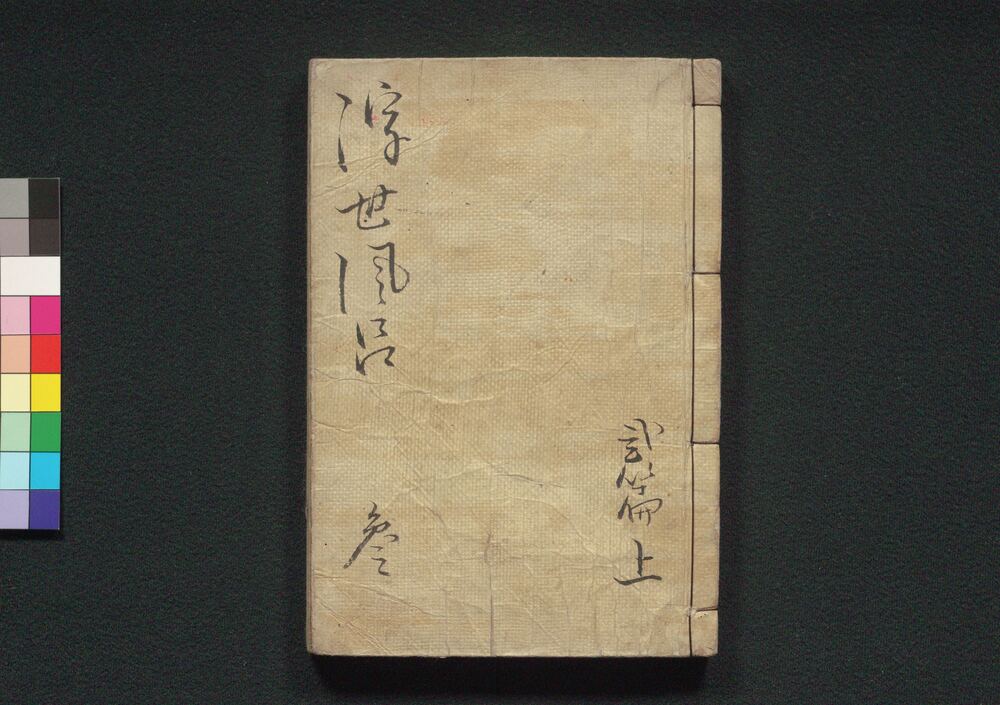 弐篇上
浮世風呂 参